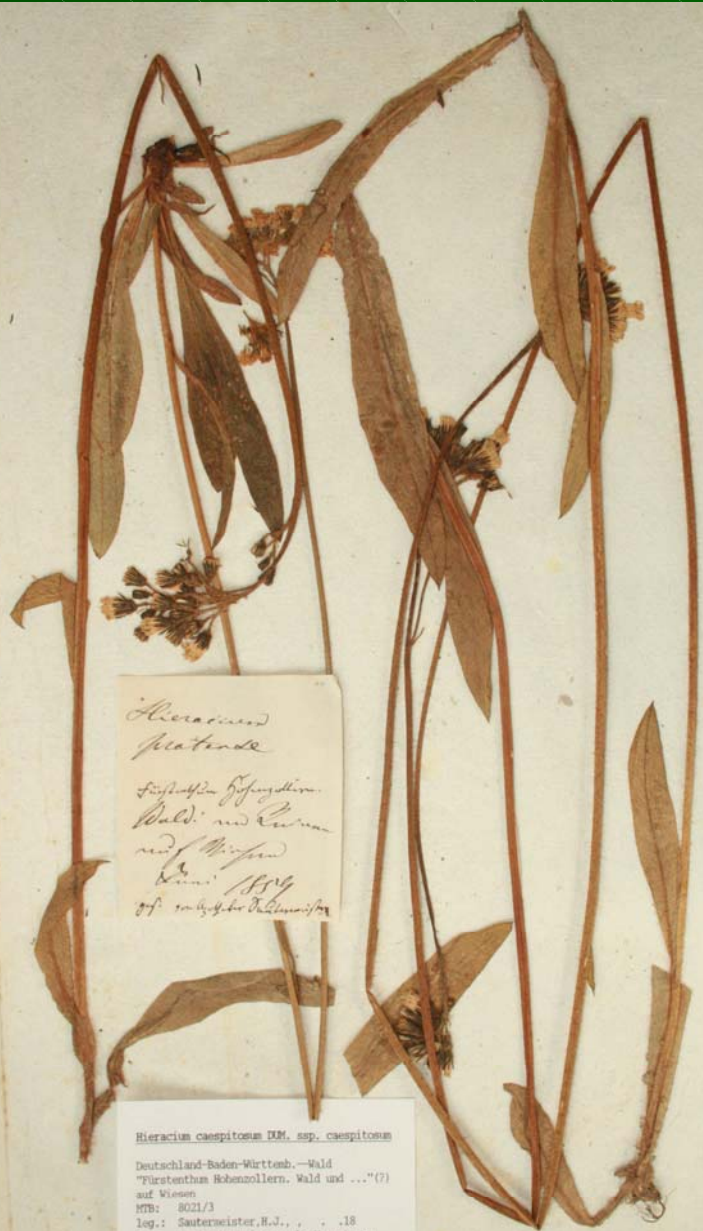 Hieracium
pratense
Fürstenthum Hohenzollern.
Wald:
auf Wiesen
Juni
ges. von Apotheker Sautermeister
Hieracium caespitosum DUM. ssp. caespitosum
Deutschland-Baden-Württemb.--Wald
"Fürstenthum Hohenzollern. Wald und ..."(?)
auf Wiesen
MTB: 8021/3
leg.: Sautermeister,H.J., , . .18